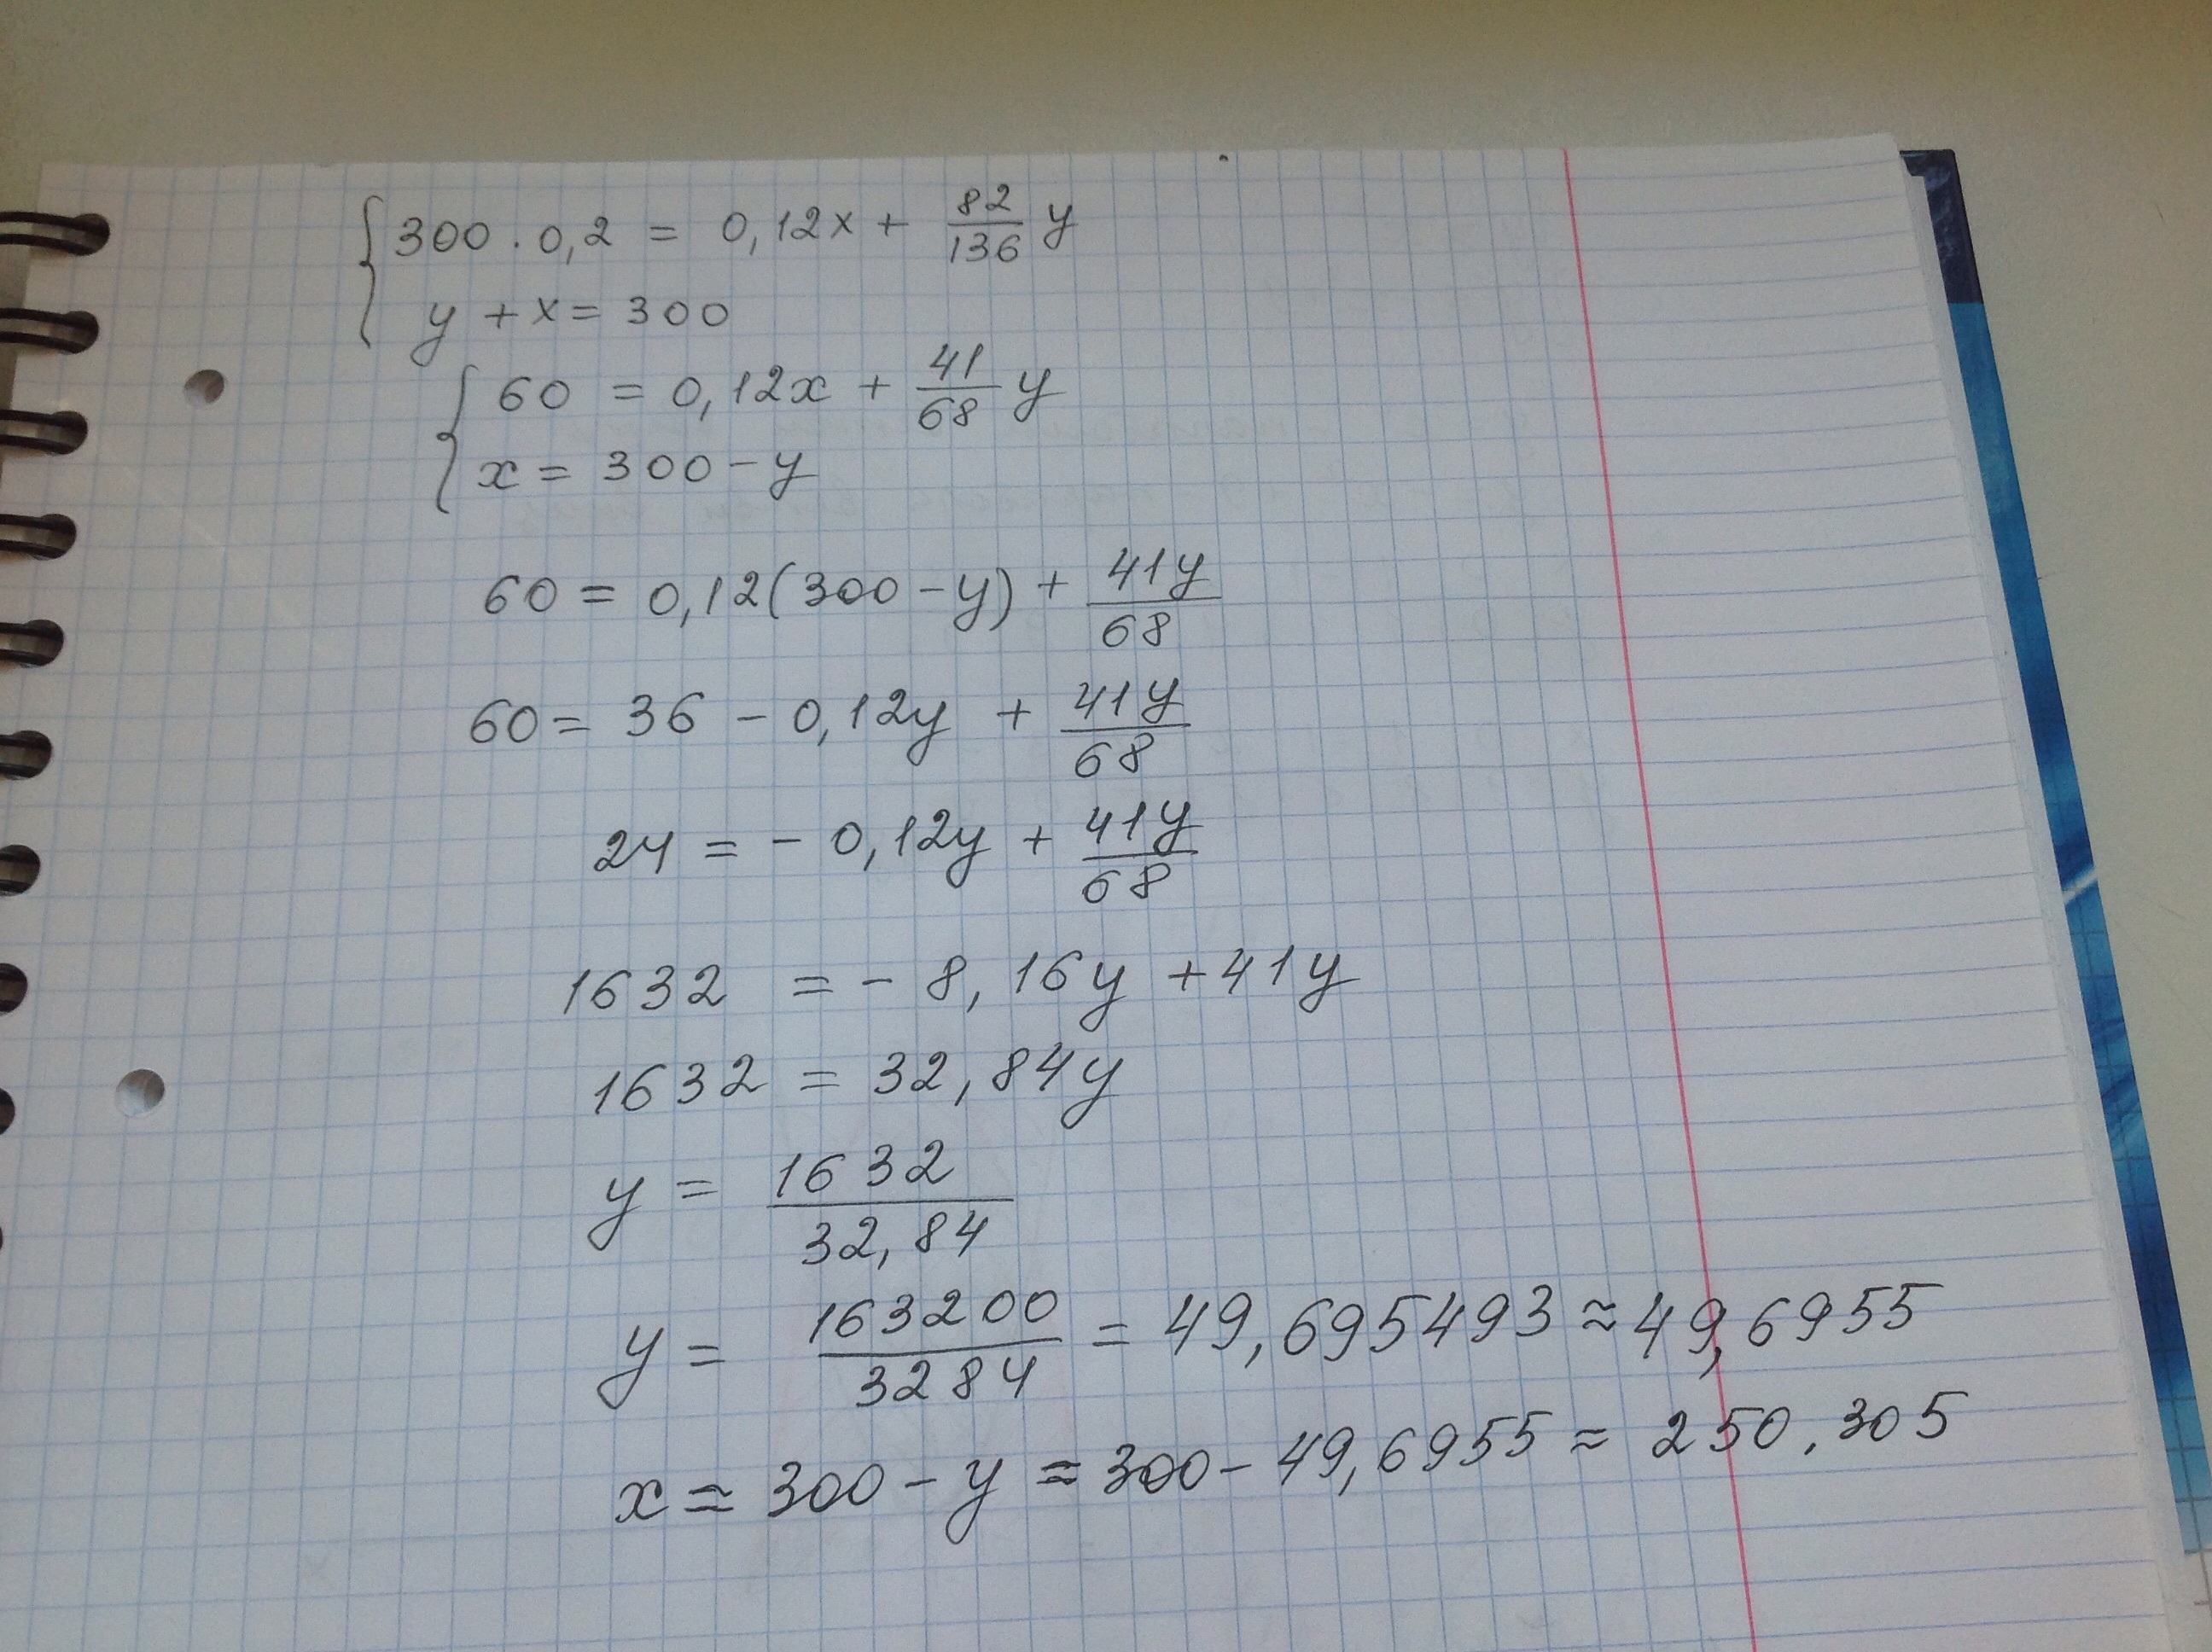 { 300 · 0,2 = 0,12x + 82/136 y
y + x = 300
{ 60 = 0,12x + 41/68 y
x = 300 - y
60 = 0,12(300 - y) + 41y/68
60 = 36 - 0,12y + 41y/68
24 = - 0,12y + 41y/68
1632 = - 8,16y + 41y
1632 = 32,84y
y = 1632/32,84
y = 163200/3284 = 49,695493 ≈ 49,6955
x ≈ 300 - y ≈ 300 - 49,6955 ≈ 250,305